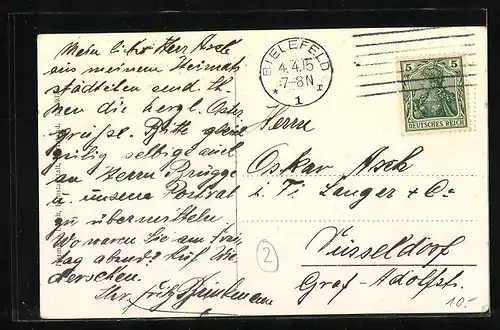 Mein lieber Herr Asch
aus meinem Heimat
städtchen send. Ih-
nen die herzl. Oster
grüsse. Bitte
selbige auch
an Herrn Brügge
u. unseren
zu übermitteln
Wo waren Sie am Frei
tag abend? Auf Wie
dersehen.
Ihr Fritz Brinkmann
BIELEFELD
4.4.15
7-8N
* 1
5 5
DEUTSCHES REICH
Herrn
Oskar Asch
i. Fi. Langer & Co
Düsseldorf
Graf-Adolfstr.
2
10.-